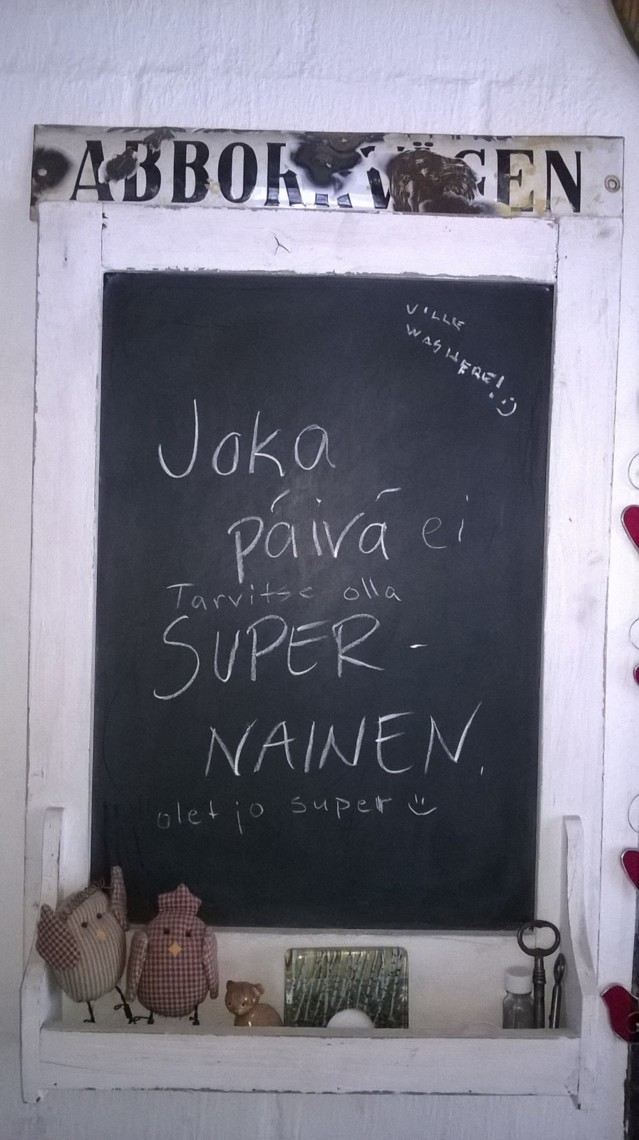 ABBORRVÄGEN
VILLE
WASHERE!
:)
Joka
päivä ei
Tarvitse olla
SUPER-
NAINEN.
olet jo super :)